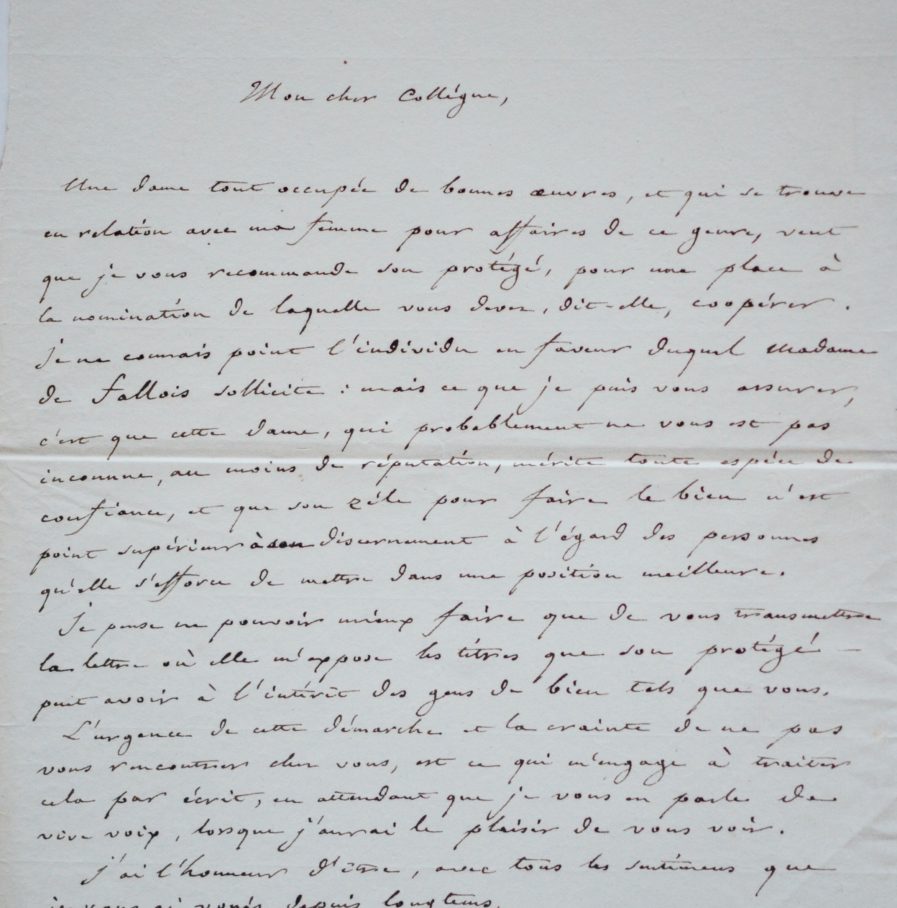 Mon cher Collégue,
Une dame tout occupée de bonnes œuvres, et qui se trouve
en relation avec ma femme pour affaires de ce genre, veut
que je vous recommande son protégé, pour une place à
la nomination de laquelle vous devez, dit-elle, coopérer.
Je ne connais point l'individu en faveur duquel Madame
de Fallois sollicite : mais ce que je puis vous assurer,
c'est que cette dame, qui probablement ne vous est pas
inconnue, au moins de réputation, mérite toute espèce de
confiance, et que son zèle pour faire le bien n'est
point supérieur à son discernement à l'égard des personnes
qu'elle s'efforce de mettre dans une position meilleure.
Je pense ne pouvoir mieux faire que de vous transmettre
la lettre où elle m'expose les titres que son protégé
peut avoir à l'intérêt des gens de bien tels que vous.
L'urgence de cette démarche et la crainte de ne pas
vous rencontrer chez vous, est ce qui m'engage à traiter
cela par écrit, en attendant que je vous en parle de
vive voix, lorsque j'aurai le plaisir de vous voir.
J'ai l'honneur d'être, avec tous les sentimens que
je vous ai voués depuis longtems.